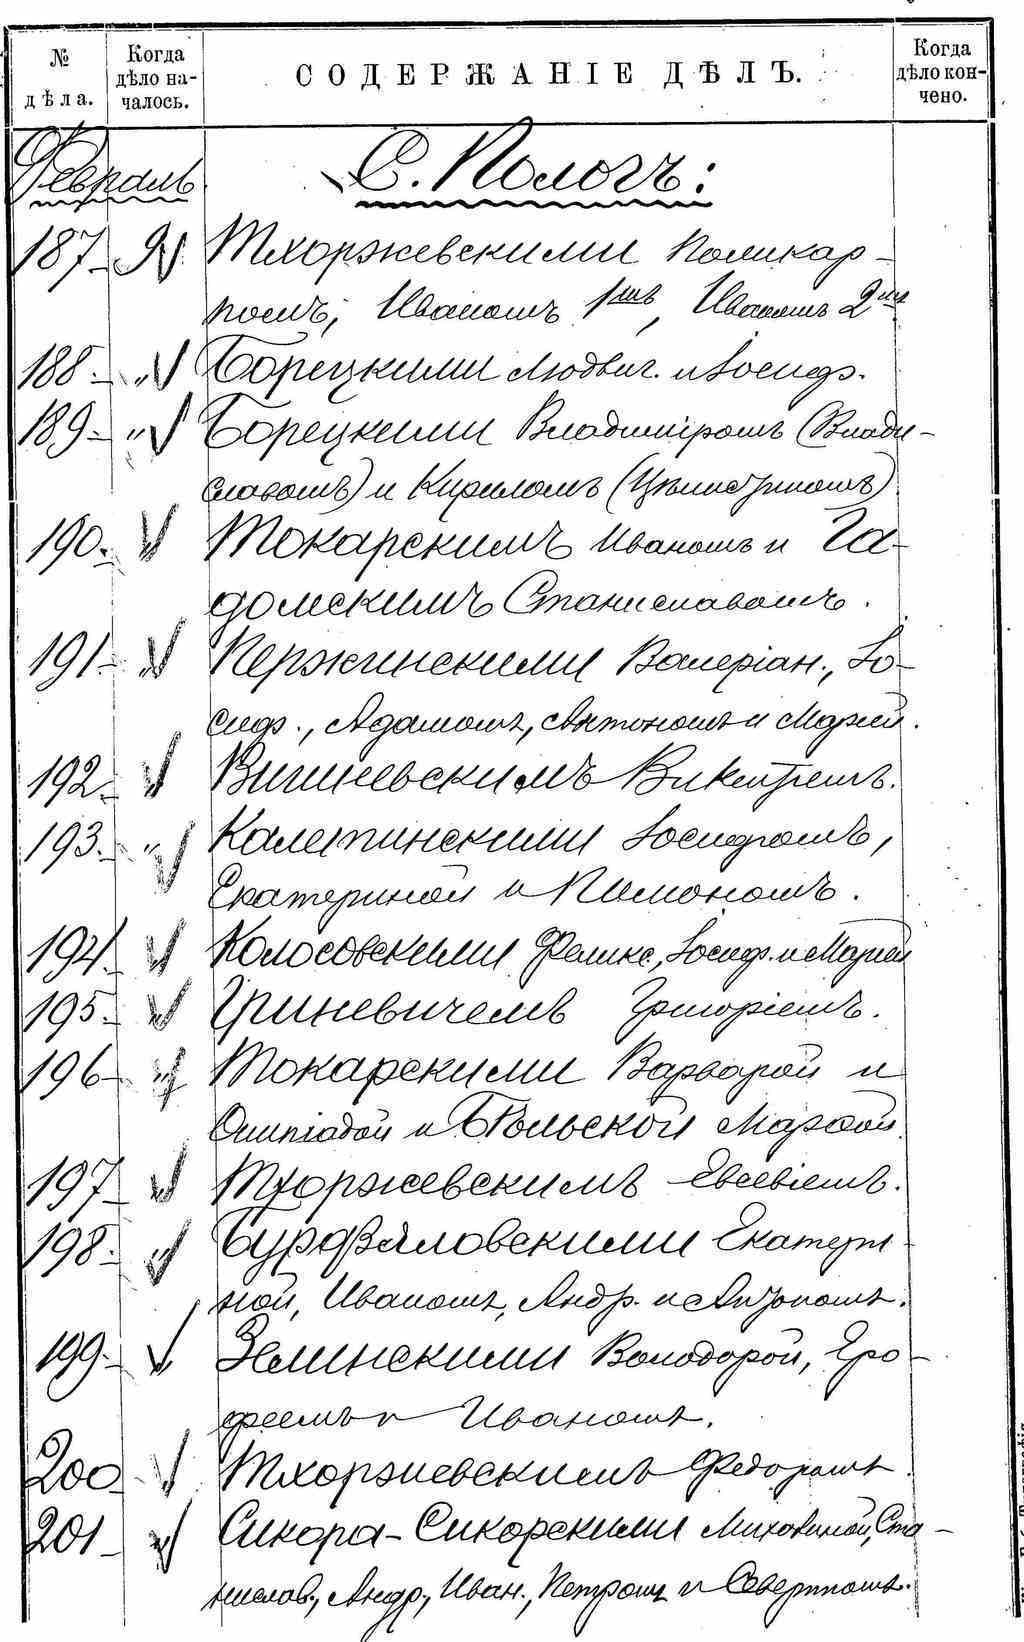 № дѣла.
Когда дѣло на-
чалось.
СОДЕРЖАНІЕ ДѢЛЪ.
Когда дѣло кон-
чено.
Февраль
С. Пологъ:
187 9 Тхоржевскими Поликар-
помъ, Иваномъ 1мъ, Иваномъ 2мъ
188 " Борецкими Людвиг. и Іосиф.
189 " Борецкими Владиміромъ (Влади-
славомъ) и Кирилломъ
190. " Токарскимъ Иваномъ и Га-
домскимъ Станиславомъ.
191 " Пержинскими Валеріан., Іо-
сиф., Адамомъ, Антономъ и Маріей.
192. " Вишневскимъ Викентіемъ.
193. " Калетинскими Іосифомъ,
Екатериной и
194. " Колосовскими Феликс., Іосиф. и Маріей
195. " Гриневичемъ Григоріемъ.
196 " Токарскими Варварой и
и Бѣльской
197 " Тхоржевскимъ Евсевіемъ.
198. " Екатери-
ной, Иваномъ, Андр. и Антономъ.
199. Зелинскими Володорой, Еро-
феемъ и Иваномъ.
200 " Тхоржевскимъ Федоромъ.
201 " Сикора-Сикорскими Михалиной, Ста-
нислав., Андр., Иван., Петромъ и Севериномъ.